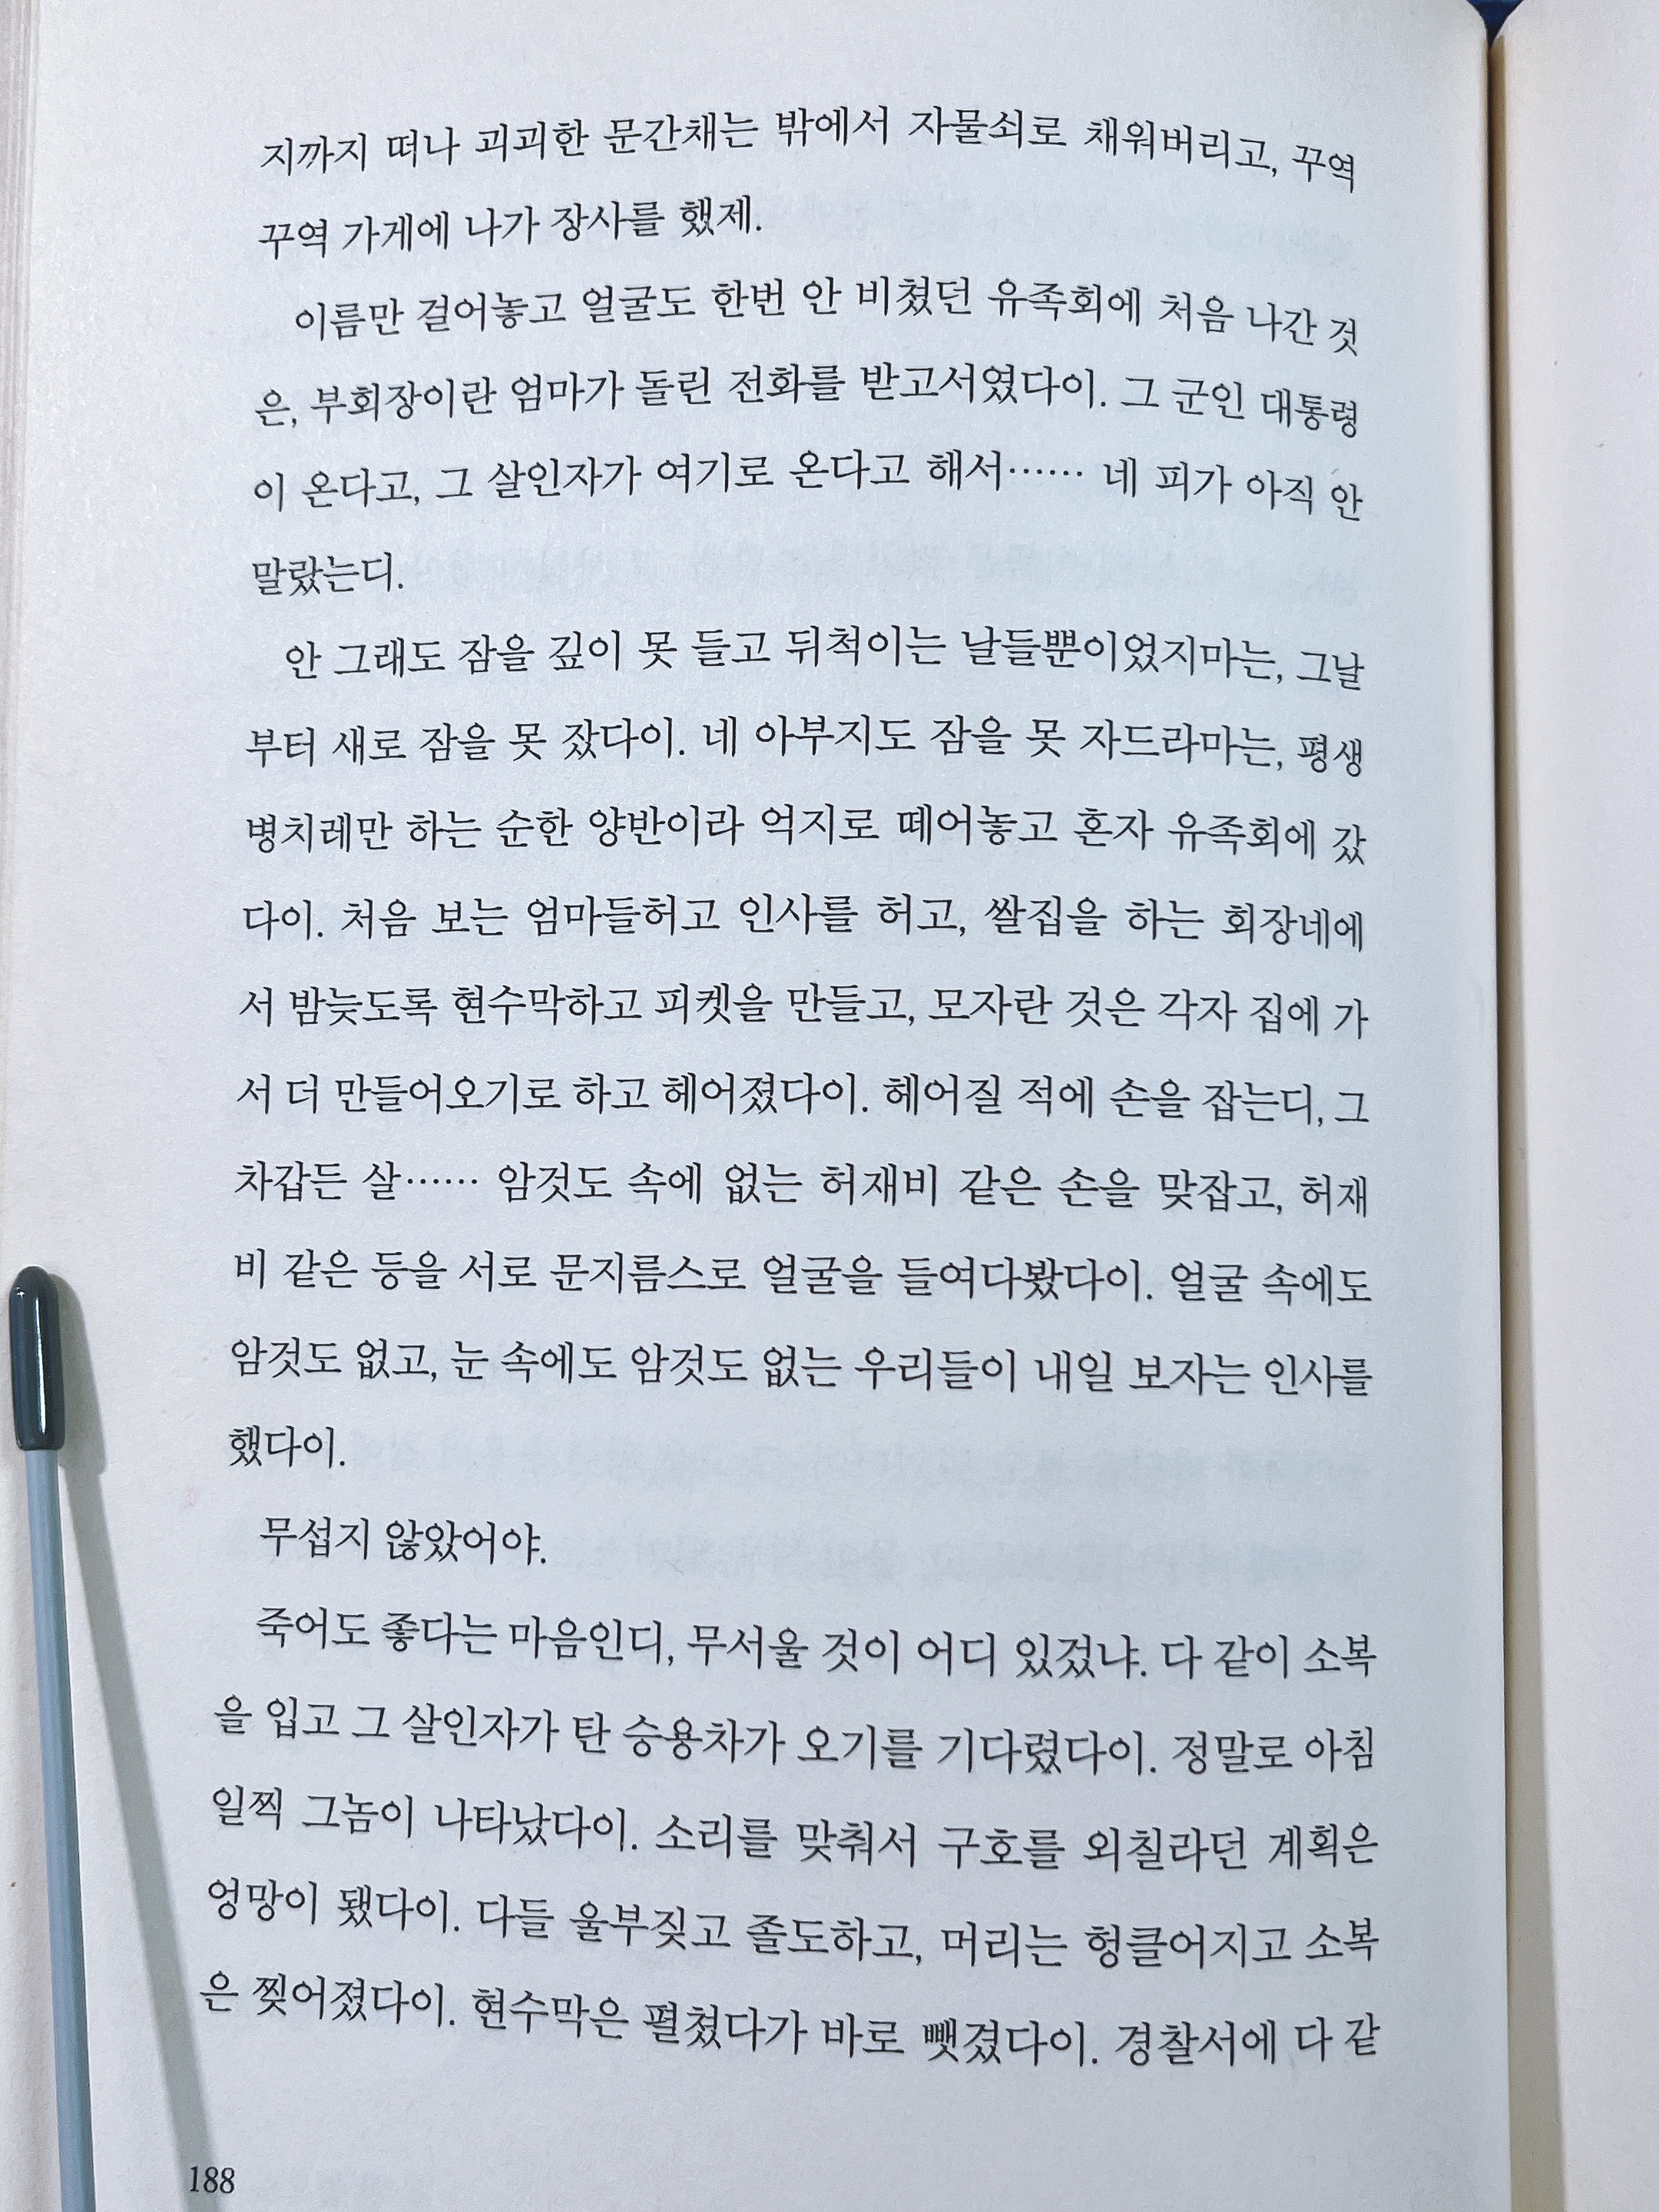 지까지 떠나 괴괴한 문간채는 밖에서 자물쇠로 채워버리고, 꾸역
꾸역 가게에 나가 장사를 했제.
이름만 걸어놓고 얼굴도 한번 안 비쳤던 유족회에 처음 나간 것
은, 부회장이란 엄마가 돌린 전화를 받고서였다이. 그 군인 대통령
이 온다고, 그 살인자가 여기로 온다고 해서…… 네 피가 아직 안
말랐는디.
안 그래도 잠을 깊이 못 들고 뒤척이는 날들뿐이었지마는, 그날
부터 새로 잠을 못 잤다이. 네 아부지도 잠을 못 자드라마는, 평생
병치레만 하는 순한 양반이라 억지로 떼어놓고 혼자 유족회에 갔
다이. 처음 보는 엄마들허고 인사를 허고, 쌀집을 하는 회장네에
서 밤늦도록 현수막하고 피켓을 만들고, 모자란 것은 각자 집에 가
서 더 만들어오기로 하고 헤어졌다이. 헤어질 적에 손을 잡는디, 그
차갑든 살…… 암것도 속에 없는 허재비 같은 손을 맞잡고, 허재
비 같은 등을 서로 문지름스로 얼굴을 들여다봤다이. 얼굴 속에도
암것도 없고, 눈 속에도 암것도 없는 우리들이 내일 보자는 인사를
했다이.
무섭지 않았어야.
죽어도 좋다는 마음인디, 무서울 것이 어디 있겄냐. 다 같이 소복
을 입고 그 살인자가 탄 승용차가 오기를 기다렸다이. 정말로 아침
일찍 그놈이 나타났다이. 소리를 맞춰서 구호를 외칠라던 계획은
엉망이 됐다이. 다들 울부짖고 졸도하고, 머리는 헝클어지고 소복
은 찢어졌다이. 현수막은 펼쳤다가 바로 뺏겼다이. 경찰서에 다 같
188